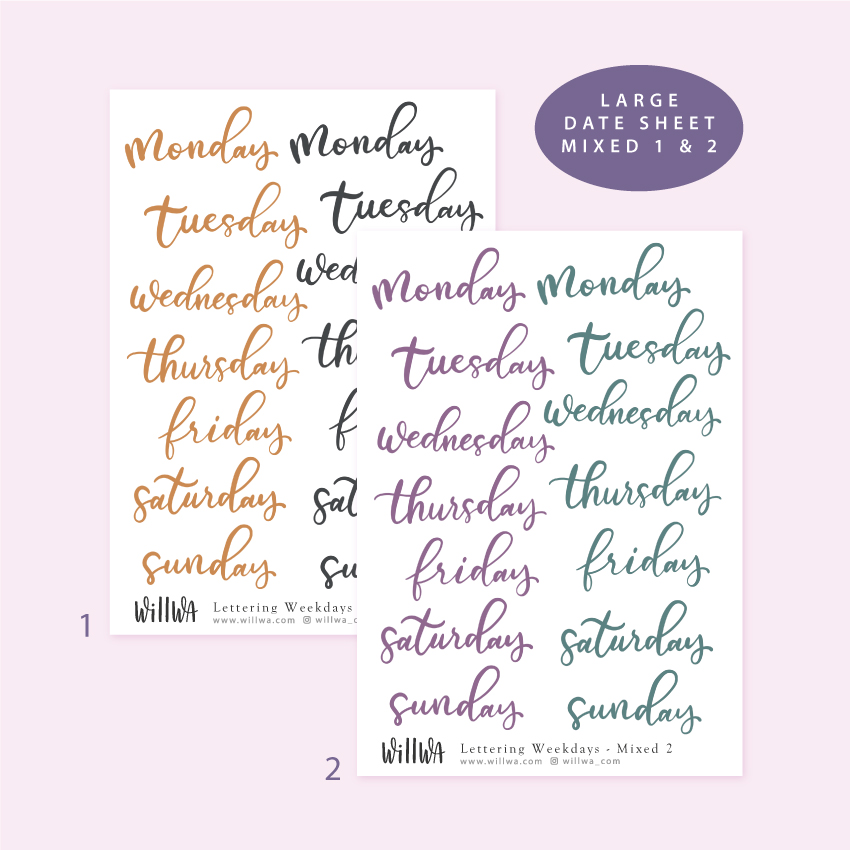 LARGE
DATE SHEET
MIXED 1 & 2
monday monday
tuesday tuesday
wednesday wed
thursday th
friday f
saturday sat
sunday su
WillWA Lettering Weekdays
www.willwa.com willwa_c
1
monday monday
tuesday tuesday
wednesday wednesday
thursday thursday
friday friday
saturday saturday
sunday sunday
WillWA Lettering Weekdays - Mixed 2
www.willwa.com willwa_com
2